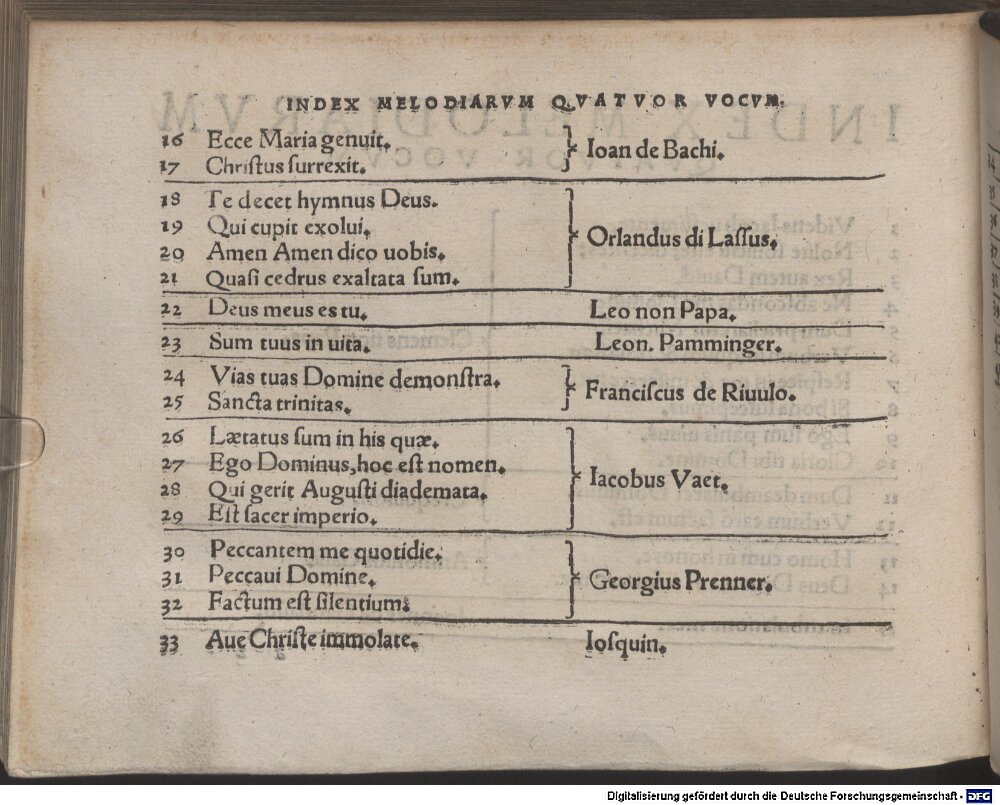 INDEX MELODIARVM QVATVOR VOCVM.
16 Ecce Maria genuit.
17 Chriſtus ſurrexit.
Ioan de Bachi.
18 Te decet hymnus Deus.
19 Qui cupit exolui.
20 Amen Amen dico uobis.
21 Quaſi cedrus exaltata ſum.
Orlandus di Laſſus.
22 Deus meus es tu. Leo non Papa.
23 Sum tuus in uita. Leon. Pamminger.
24 Vias tuas Domine demonſtra.
25 Sancta trinitas.
Franciſcus de Riuulo.
26 Lætatus ſum in his quæ.
27 Ego Dominus, hoc eſt nomen.
28 Qui gerit Auguſti diademata.
29 Eſt ſacer imperio.
Iacobus Vaet.
30 Peccantem me quotidie.
31 Peccaui Domine.
32 Factum eſt ſilentium.
Georgius Prenner.
33 Aue Chriſte immolate. Ioſquin.
Digitalisierung gefördert durch die Deutsche Forschungsgemeinschaft - DFG